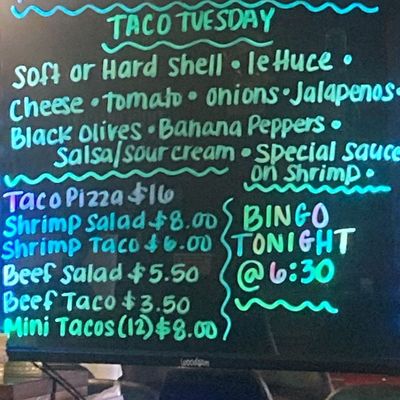 TACO TUESDAY
Soft or Hard Shell • lettuce •
Cheese • Tomato • Onions • Jalapenos •
Black Olives • Banana Peppers •
Salsa/Sour cream • Special Sauce
on Shrimp •
Taco Pizza $16
Shrimp Salad $8.00
Shrimp Taco $6.00
Beef Salad $5.50
Beef Taco $3.50
Mini Tacos (12) $8.00
BINGO
TONIGHT
@ 6:30